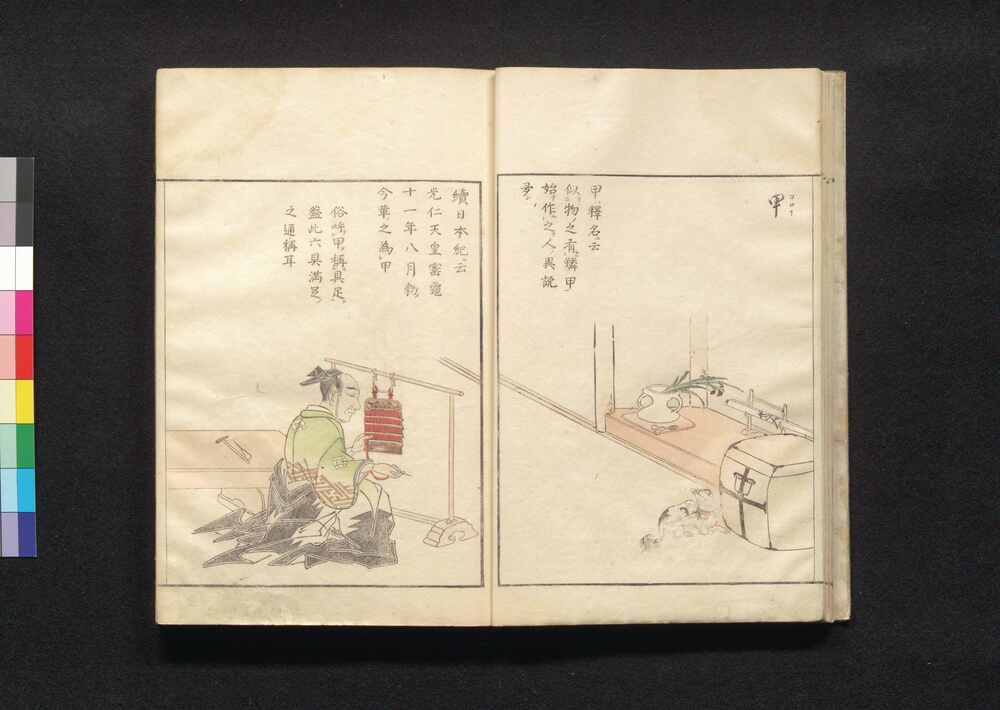 甲
ヨロヒ
甲釋名云
似物之有鱗甲
始作之人異説
多
續日本紀云
光仁天皇寳龜
十一年八月勅
今革之為甲
俗呼甲稱具足
盖此六具満足
之通稱耳